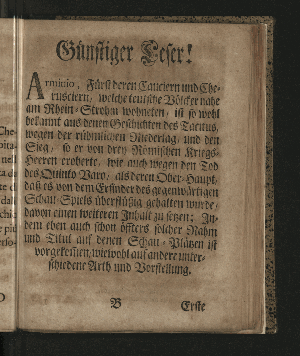 Günstiger Leser!
Arminio, Fürst deren Cauciern und Che-
rusciern, welche teutsche Völcker nahe
am Rhein-Strohm wohneten, ist so wohl
bekannt aus denen Geschichten des Tacitus,
wegen der rühmlichen Niederlag, und den
Sieg, so er von drey Römischen Kriegs-
Heeren eroberte, wie auch wegen den Tod
des Quinto Varo, als deren Ober-Haupt,
daß es von dem Erfinder des gegenwärtigen
Schau-Spiels überflüßig gehalten wurde,
davon einen weiteren Inhalt zu setzen; In-
dem eben auch schon öffters solcher Nahm
und Titul auf denen Schau-Plätzen ist
vorgekommen, wiewohl auf andere unter-
schiedene Arth und Vorstellung.
B Erste